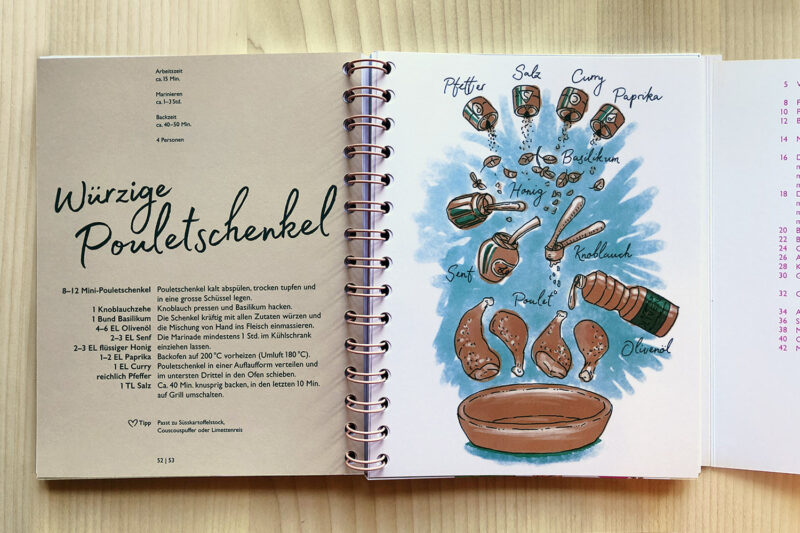 Arbeitszeit
ca. 15 Min.
Marinieren
ca. 1–3 Std.
Backzeit
ca. 40–50 Min.
4 Personen
Würzige
Pouletschenkel
8–12 Mini-Pouletschenkel
1 Knoblauchzehe
1 Bund Basilikum
4–6 EL Olivenöl
2–3 EL Senf
2–3 EL flüssiger Honig
1–2 EL Paprika
1 EL Curry
reichlich Pfeffer
1 TL Salz
Pouletschenkel kalt abspülen, trocken tupfen und
in eine grosse Schüssel legen.
Knoblauch pressen und Basilikum hacken.
Die Schenkel kräftig mit allen Zutaten würzen und
die Mischung von Hand ins Fleisch einmassieren.
Die Marinade mindestens 1 Std. im Kühlschrank
einziehen lassen.
Backofen auf 200 °C vorheizen (Umluft 180 °C).
Pouletschenkel in einer Auflaufform verteilen und
im untersten Drittel in den Ofen schieben.
Ca. 40 Min. knusprig backen, in den letzten 10 Min.
auf Grill umschalten.
Tipp
Passt zu Süsskartoffelstock,
Couscouspuffer oder Limettenreis
52 | 53
Pfeffer
Salz
Curry
Paprika
Basilikum
Honig
Knoblauch
Senf
Poulet
Olivenöl
5
8
10
12
14
16
18
20
22
24
26
28
30
32
34
36
38
40
42